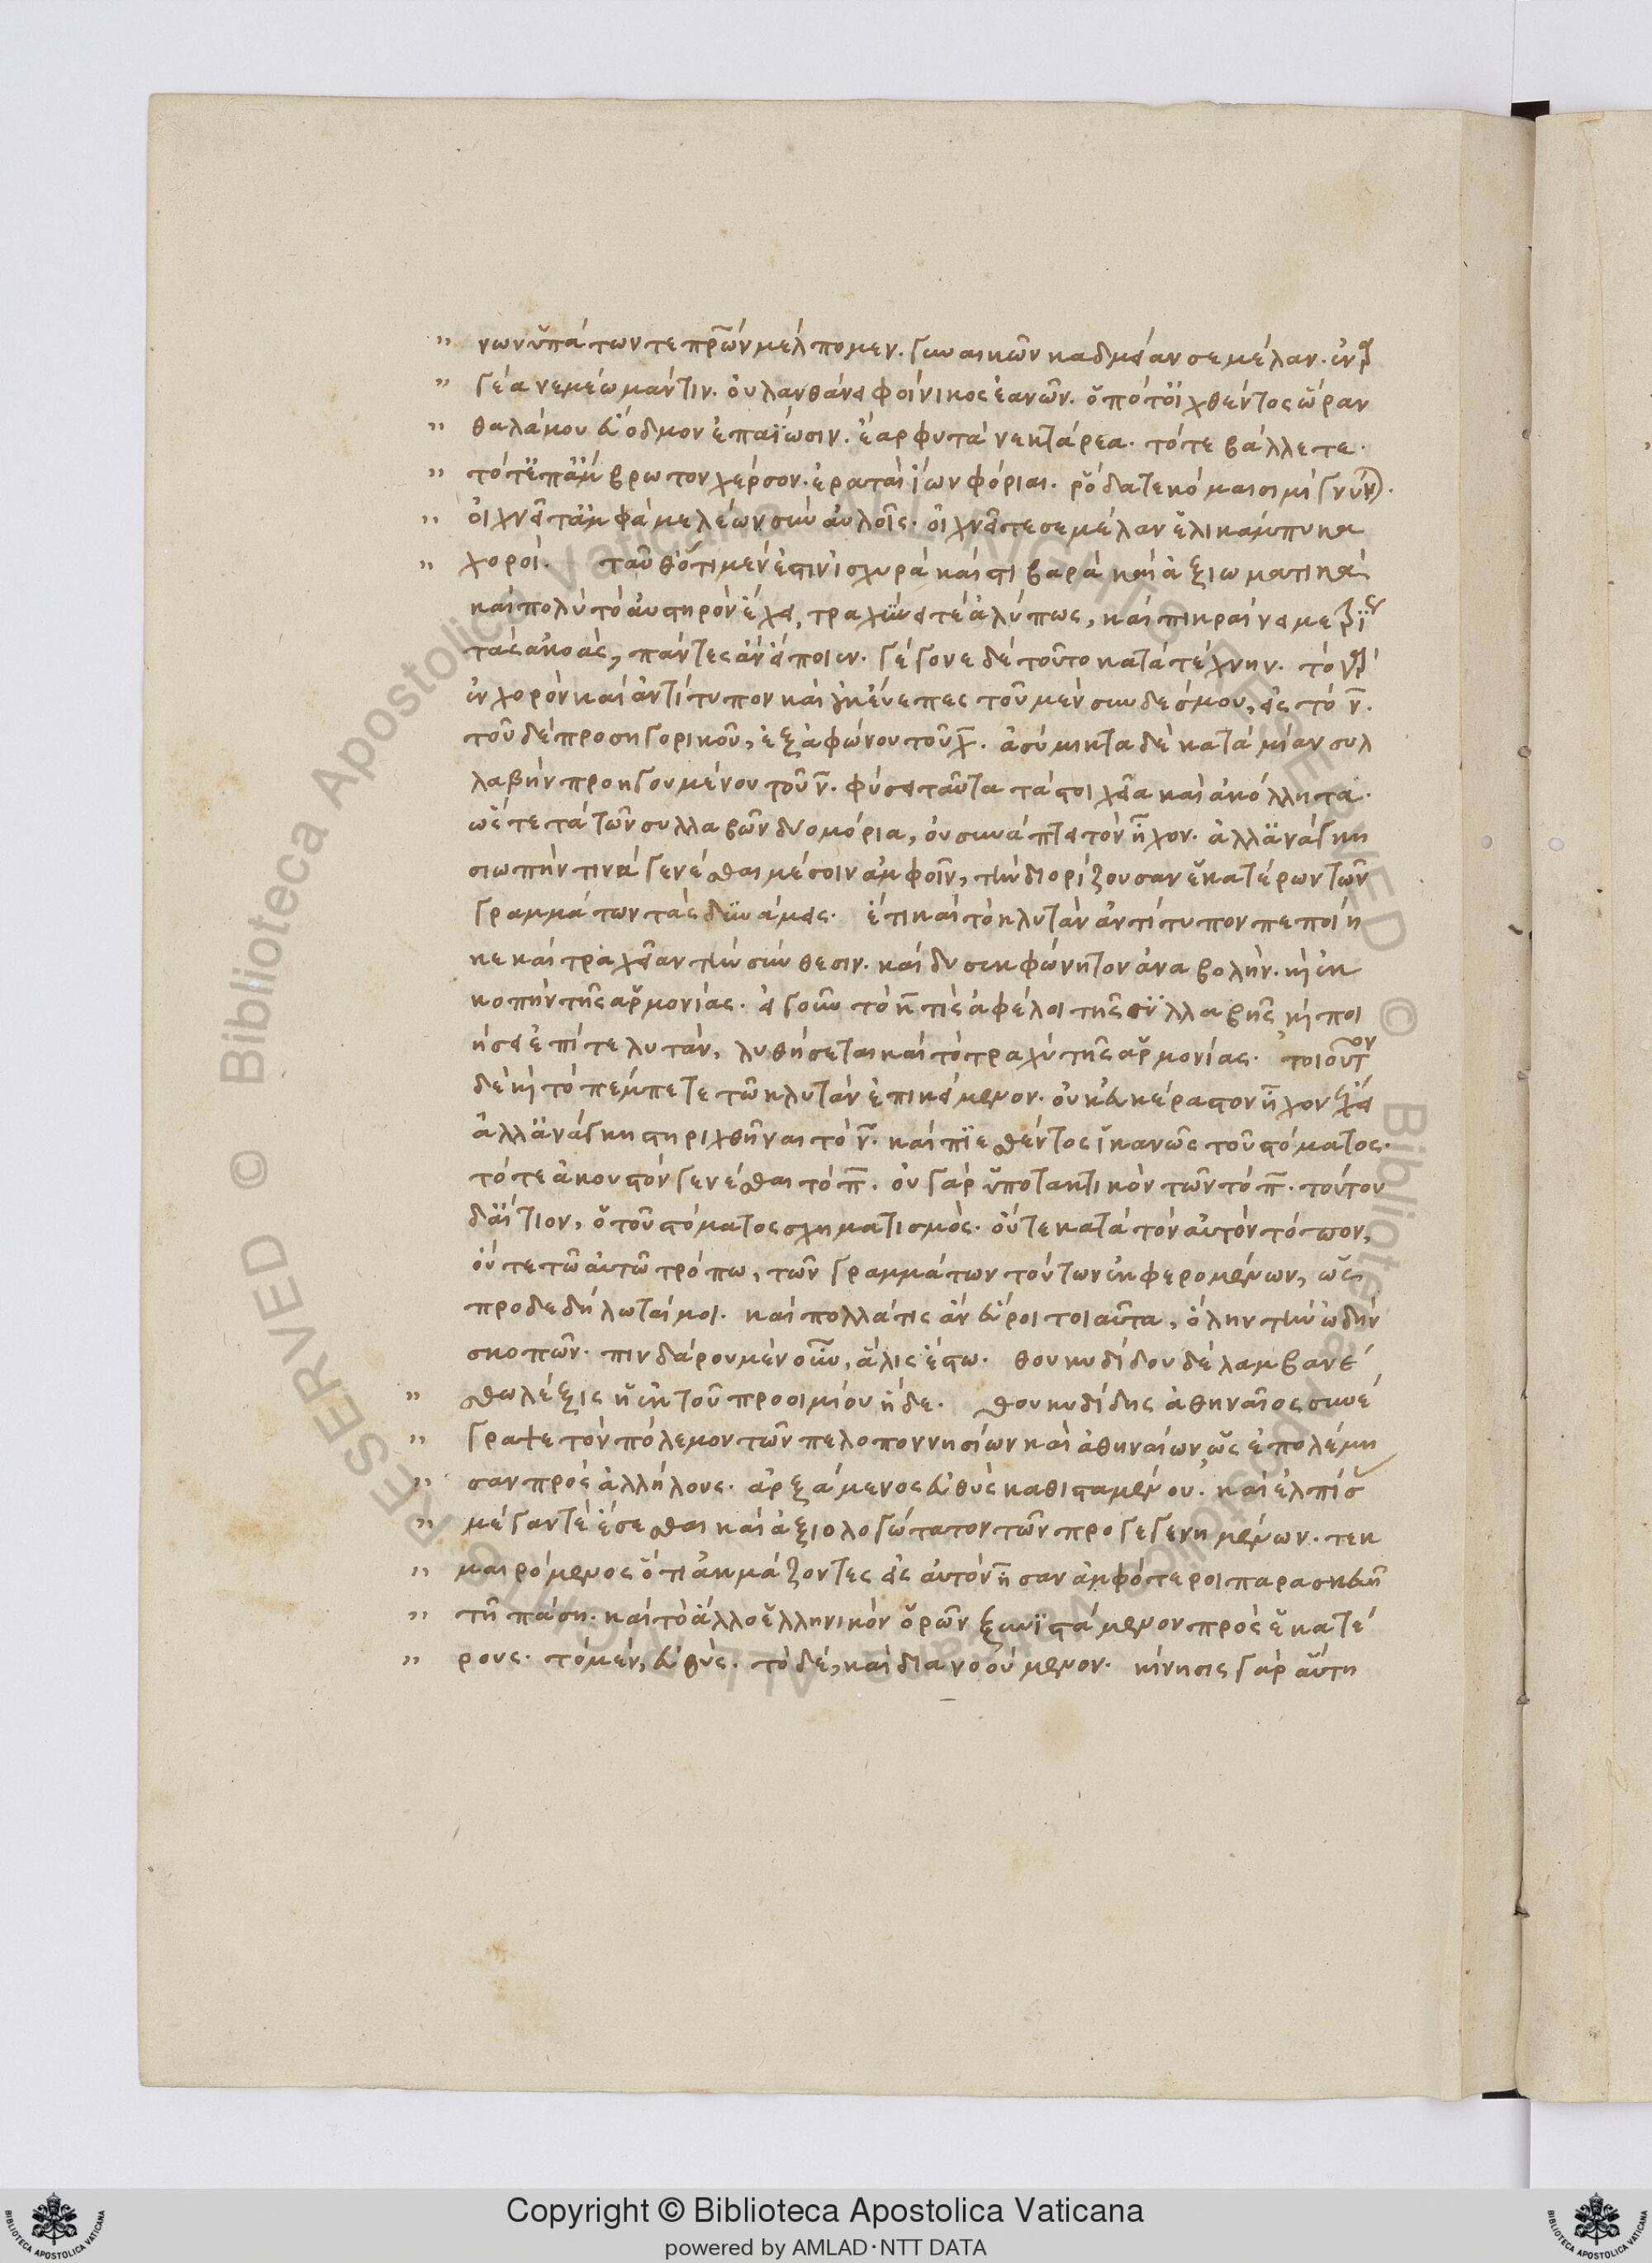 νων ὑπάτων τε πρῶν μέλπομεν. γυναικῶν καδμείαν σεμέλαν. ἐν ἀρ
γέα νεμέω μάντιν. οὐ λανθάνει φοίνικος ἐανῶν. ὁπότ' οἰχθέντος ὡρᾶν
θαλάμου εὔοδμον ἐπαΐωσιν. ἔαρ φυτὰ νεκτάρεα. τότε βάλλετε.
τότ' ἐπ' ἄμβρωτον χέρσον. ἐραταὶ ἴων φόβαι. ῥόδα τε κόμαισι μίγνυν).
οἰχνεῖ τ' ἀμφὰ μελέων σὺν αὐλοῖς. οἰχνεῖτε σεμέλαν ἑλικάμπυκα
χοροί. ταῦθ' ὅτι μέν ἐστιν ἰσχυρὰ καὶ στιβαρὰ καὶ ἀξιωματικὰ
καὶ πολὺ τὸ αὐστηρὸν ἔχει, τραχύνει τε ἀλύπως, καὶ πικραίνει μετρί
τὰς ἀκοάς, πάντες ἂν εἴποιεν. γέγονε δὲ τοῦτο κατὰ τέχνην. τὸ γὰρ
ἐν χορὸν καὶ ἀντίτυπον καὶ οὐκ εὐεπες τοῦ μὲν συνδέσμου, εἰς τὸ ν.
τοῦ δὲ προσηγορικοῦ, ἐξ ἀφώνου τοῦ χ. ἀσύμικτα δὲ κατὰ μίαν συλ
λαβὴν προηγουμένου τοῦ ν. φύσει ταῦτα τὰ στοιχεῖα καὶ ἀκόλλητα.
ὥστε τὰ τῶν συλλαβῶν δύο μόρια, οὐ συνάπτει τὸν ἦχον. ἀλλ' ἀνάγκη
σιωπήν τινα γενέσθαι μέσοιν ἀμφοῖν, τὴν διορίζουσαν ἑκατέρων τῶν
γραμμάτων τὰς δυνάμεις. ἔτι καὶ τὸ κλυτὰν ἀντίτυπον πεποίη
κε καὶ τραχεῖαν τὴν σύνθεσιν. καὶ δυσεκφώνητον ἀναβολὴν. κỳ ἐκ
κοπὴν τῆς ἁρμονίας. εἰ γοῦν τὸ κ τις ἀφέλοι τῆς συλλαβῆς κỳ ποι
ήσει ἐπί τε λυτάν, λυθήσεται καὶ τὸ τραχὺ τῆς ἁρμονίας. τοιοῦτον
δὲ κỳ τὸ πέμπετε τῶ κλυτὰν ἐπικείμενον. οὐκ εὐκέραστον ἦχον ἔχει
ἀλλ' ἀνάγκη στηριχθῆναι τὸ ν. καὶ πιεσθέντος ἱκανῶς τοῦ στόματος.
τότε ἀκουστὸν γενέσθαι τὸ π. οὐ γὰρ ὑποτακτικὸν τῶν τὸ π. τούτου
δ' αἴτιον, ὁ τοῦ στόματος σχηματισμός. οὔτε κατὰ τὸν αὐτὸν τόπον,
οὔτε τῶ αὐτῶ τρόπω, τῶν γραμμάτων τούτων ἐκφερομένων, ὡς
προδεδήλωταί μοι. καὶ πολλά τις ἂν εὕροι τοιαῦτα, ὅλην τὴν ὠδὴν
σκοπῶν. πινδάρου μὲν οὖν, ἅλις ἔστω. θουκυδίδου δὲ λαμβανέ
σθω λέξις ἡ ἐκ τοῦ προοιμίου ἥδε. Θουκυδίδης ἀθηναῖος συνέ
γραψε τὸν πόλεμον τῶν πελοποννησίων καὶ ἀθηναίων, ὡς ἐπολέμη
σαν πρὸς ἀλλήλους. ἀρξάμενος εὐθὺς καθισταμένου. καὶ ἐλπίσ
μέγαν τε ἔσεσθαι καὶ ἀξιολογώτατον τῶν προγεγενημένων. τεκ
μαιρόμενος ὅτι ἀκμάζοντες εἰς αὐτὸν ἦσαν ἀμφότεροι παρασκευῆ
τῆ πάση. καὶ τὸ ἄλλο ἑλληνικὸν ὁρῶν ξυνιστάμενον πρὸς ἑκατέ
ρους. τὸ μὲν, εὐθύς. τὸ δὲ, καὶ διανοούμενον. κίνησις γὰρ αὕτη
Copyright © Biblioteca Apostolica Vaticana
powered by AMLAD·NTT DATA